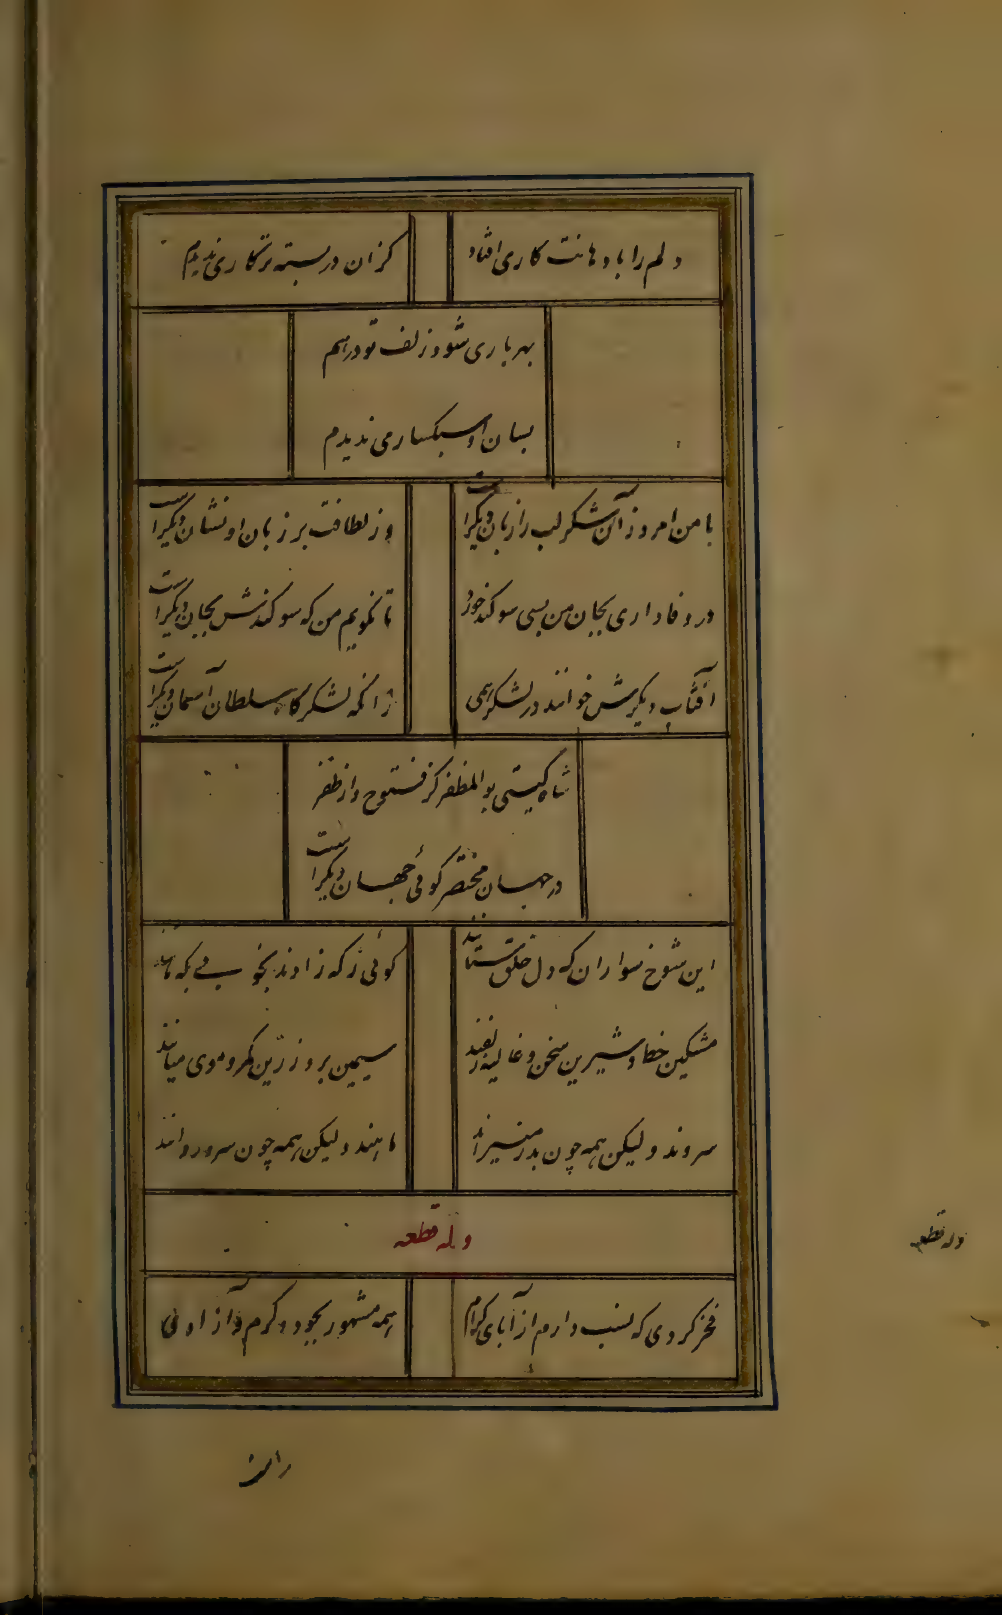 دلم را با دهانت کاری افتاد
کزان در بسته تر کاری ندیدم
بهر باری شود زلف تو درهم
بسان او سبکساری ندیدم
با من امروز آن شکر لب را زبان دیگر است
وز لطافت بر زبان او نشان دیگر است
در وفاداری بجان من بسی سوکند خورد
تا نکویم من که سوکندش بجان دیگر است
آفتاب دیکرش خوانند در لشکر همی
زانکه لشکرگاه سلطان آسمان دیگر است
شاه کیتی بوالمظفر کز فتوح و از ظفر
در جهان مختصر کوئی جهان دیگر است
این شوخ سواران که دل خلق ستانند
کوئی ز که زادند بخوبی بکه مانند
مشکین خط و شیرین سخن و غالیه زلفند
سیمین بر و زرین کمر و موی میانند
سروند ولیکن همه چون بدر منیراند
ماهند ولیکن همه چون سرو روانند
وله قطعه
وله قطعه
فخر کردی که نسب دارم از آبای کرام
همه مشهور بجود و کرم و آز اولی